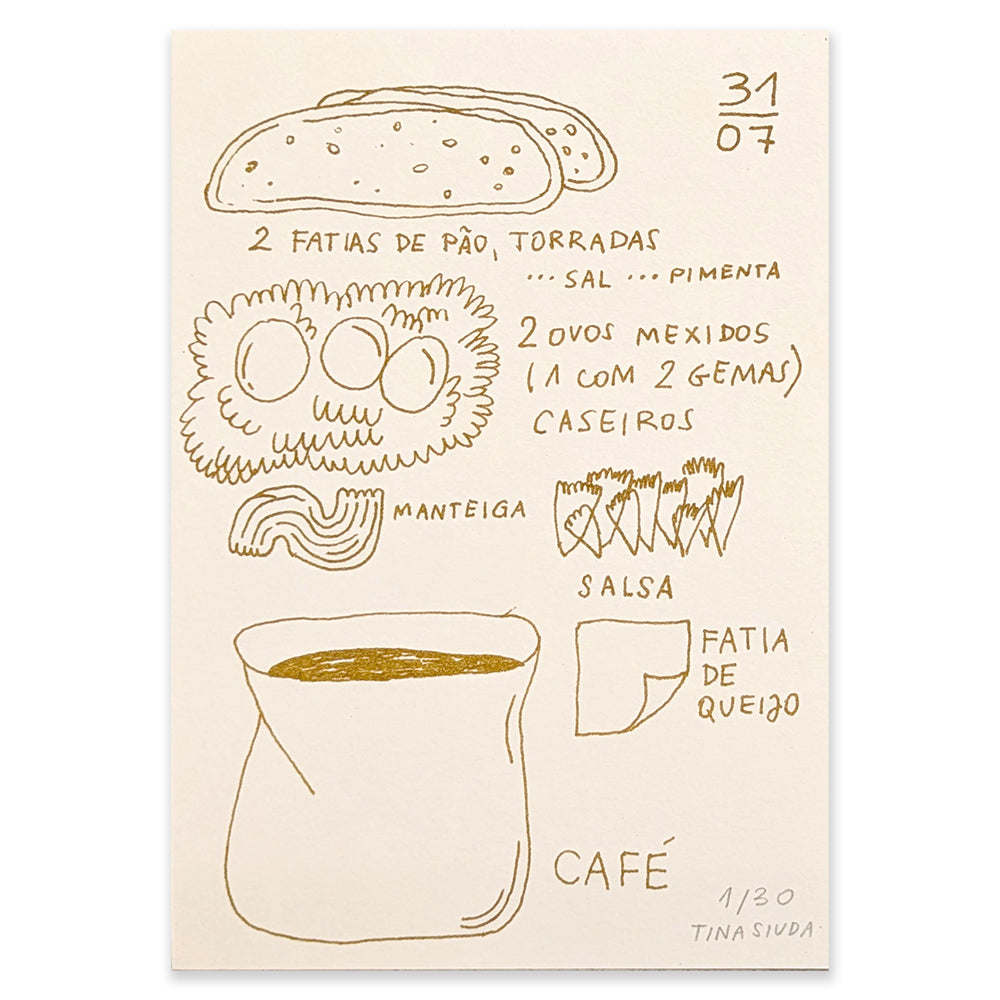 31
07
2 FATIAS DE PÃO, TORRADAS
... SAL ... PIMENTA
2 OVOS MEXIDOS
(1 COM 2 GEMAS)
CASEIROS
MANTEIGA
SALSA
FATIA
DE
QUEIJO
CAFÉ
1/30
TINA SIUDA